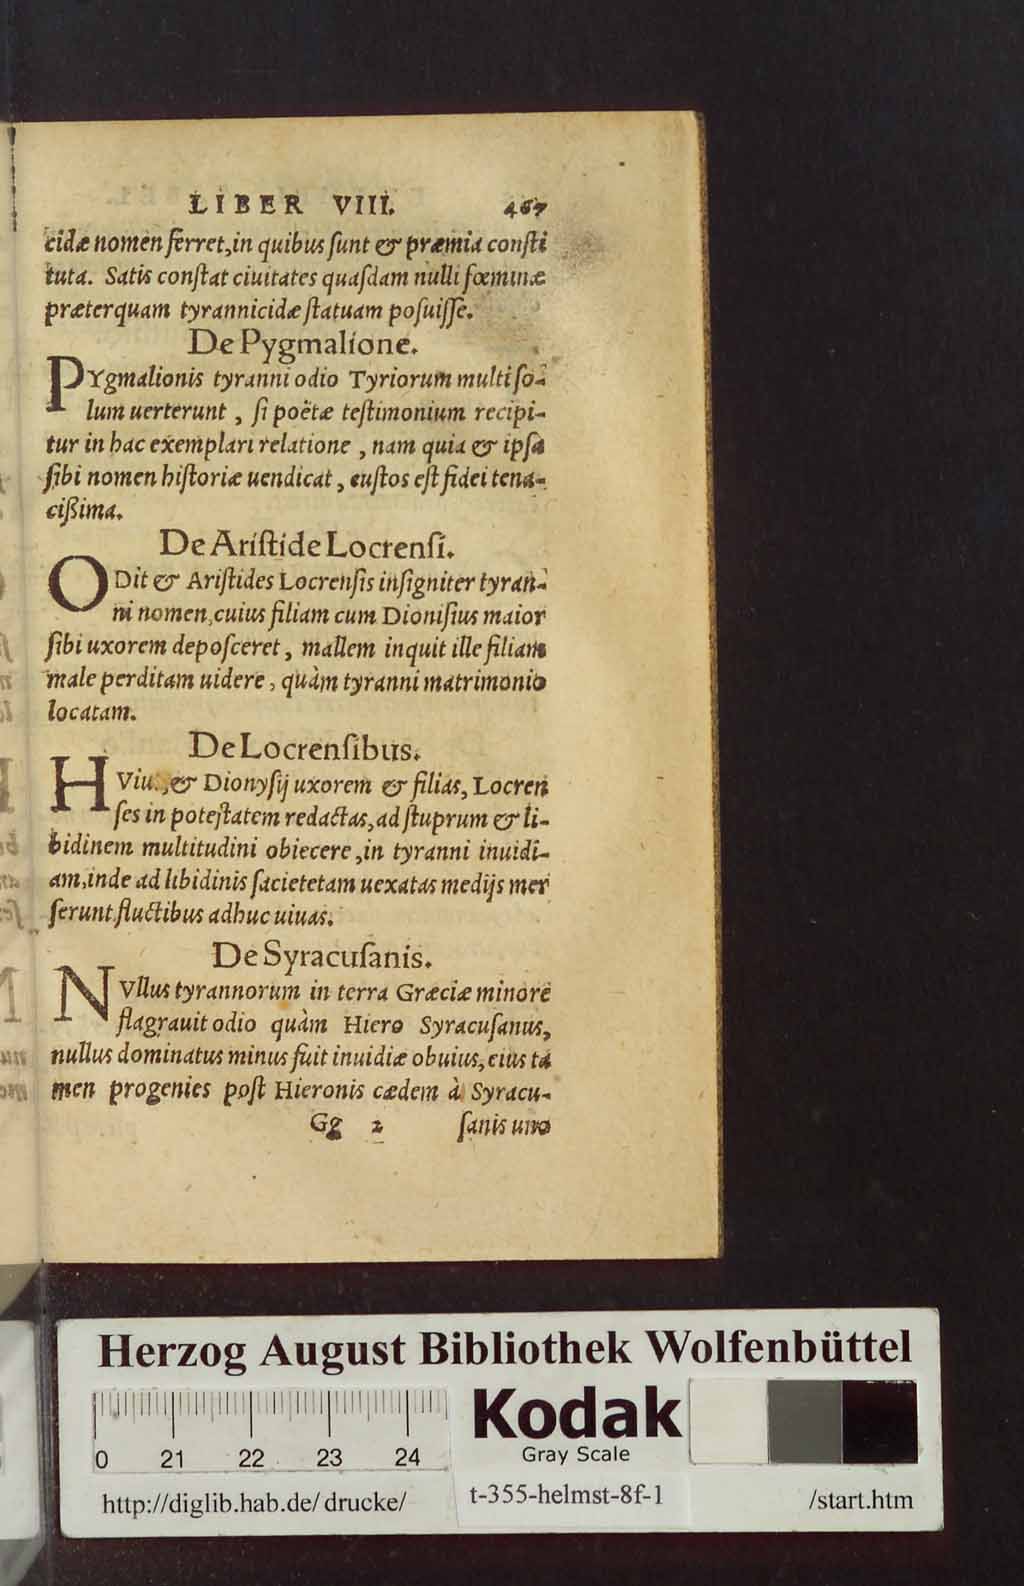 LIBER VIII. 467
cidæ nomen ferret, in quibus ſunt & præmia conſti
tuta. Satis conſtat ciuitates quaſdam nulli fœminæ
præterquam tyrannicidæ ſtatuam poſuiſſe.
De Pygmalione.
PYgmalionis tyranni odio Tyriorum multi ſo-
lum uerterunt, ſi poëtæ teſtimonium recipi-
tur in hac exemplari relatione, nam quia & ipſa
ſibi nomen hiſtoriæ uendicat, cuſtos eſt fidei tena-
cißima.
De Ariſtide Locrenſi.
ODit & Ariſtides Locrenſis inſigniter tyran-
ni nomen, cuius filiam cum Dioniſius maior
ſibi uxorem depoſceret, mallem inquit ille filiam
male perditam uidere, quàm tyranni matrimonio
locatam.
De Locrenſibus.
HViu., & Dionyſij uxorem & filias, Locren
ſes in poteſtatem redactas, ad ſtuprum & li-
bidinem multitudini obiecere, in tyranni inuidi-
am, inde ad libidinis ſacietetam uexatas medijs mer
ſerunt fluctibus adhuc uiuas.
De Syracuſanis.
NVllus tyrannorum in terra Græciæ minore
flagrauit odio quàm Hiero Syracuſanus,
nullus dominatus minus fuit inuidiæ obuius, eius ta
men progenies poſt Hieronis cædem à Syracu-
Gg 2 ſanis uno
Herzog August Bibliothek Wolfenbüttel
Kodak
Gray Scale
0 21 22 23 24
http://diglib.hab.de/drucke/ t-355-helmst-8f-1 /start.htm